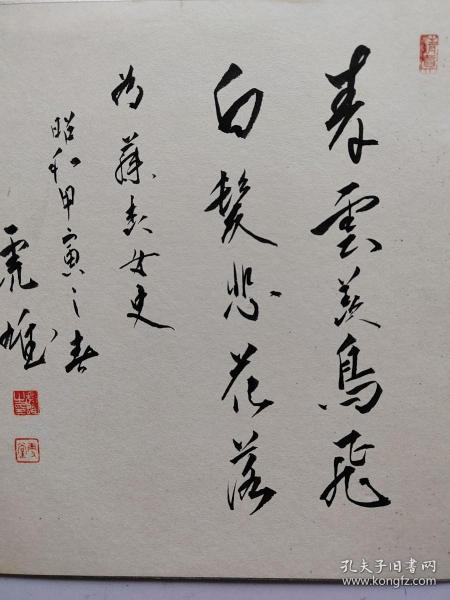 青雲羨鳥飛
白髮悲花落
為女史
昭和甲寅之春
虎雄
孔夫子旧书网
www.kongfz.com